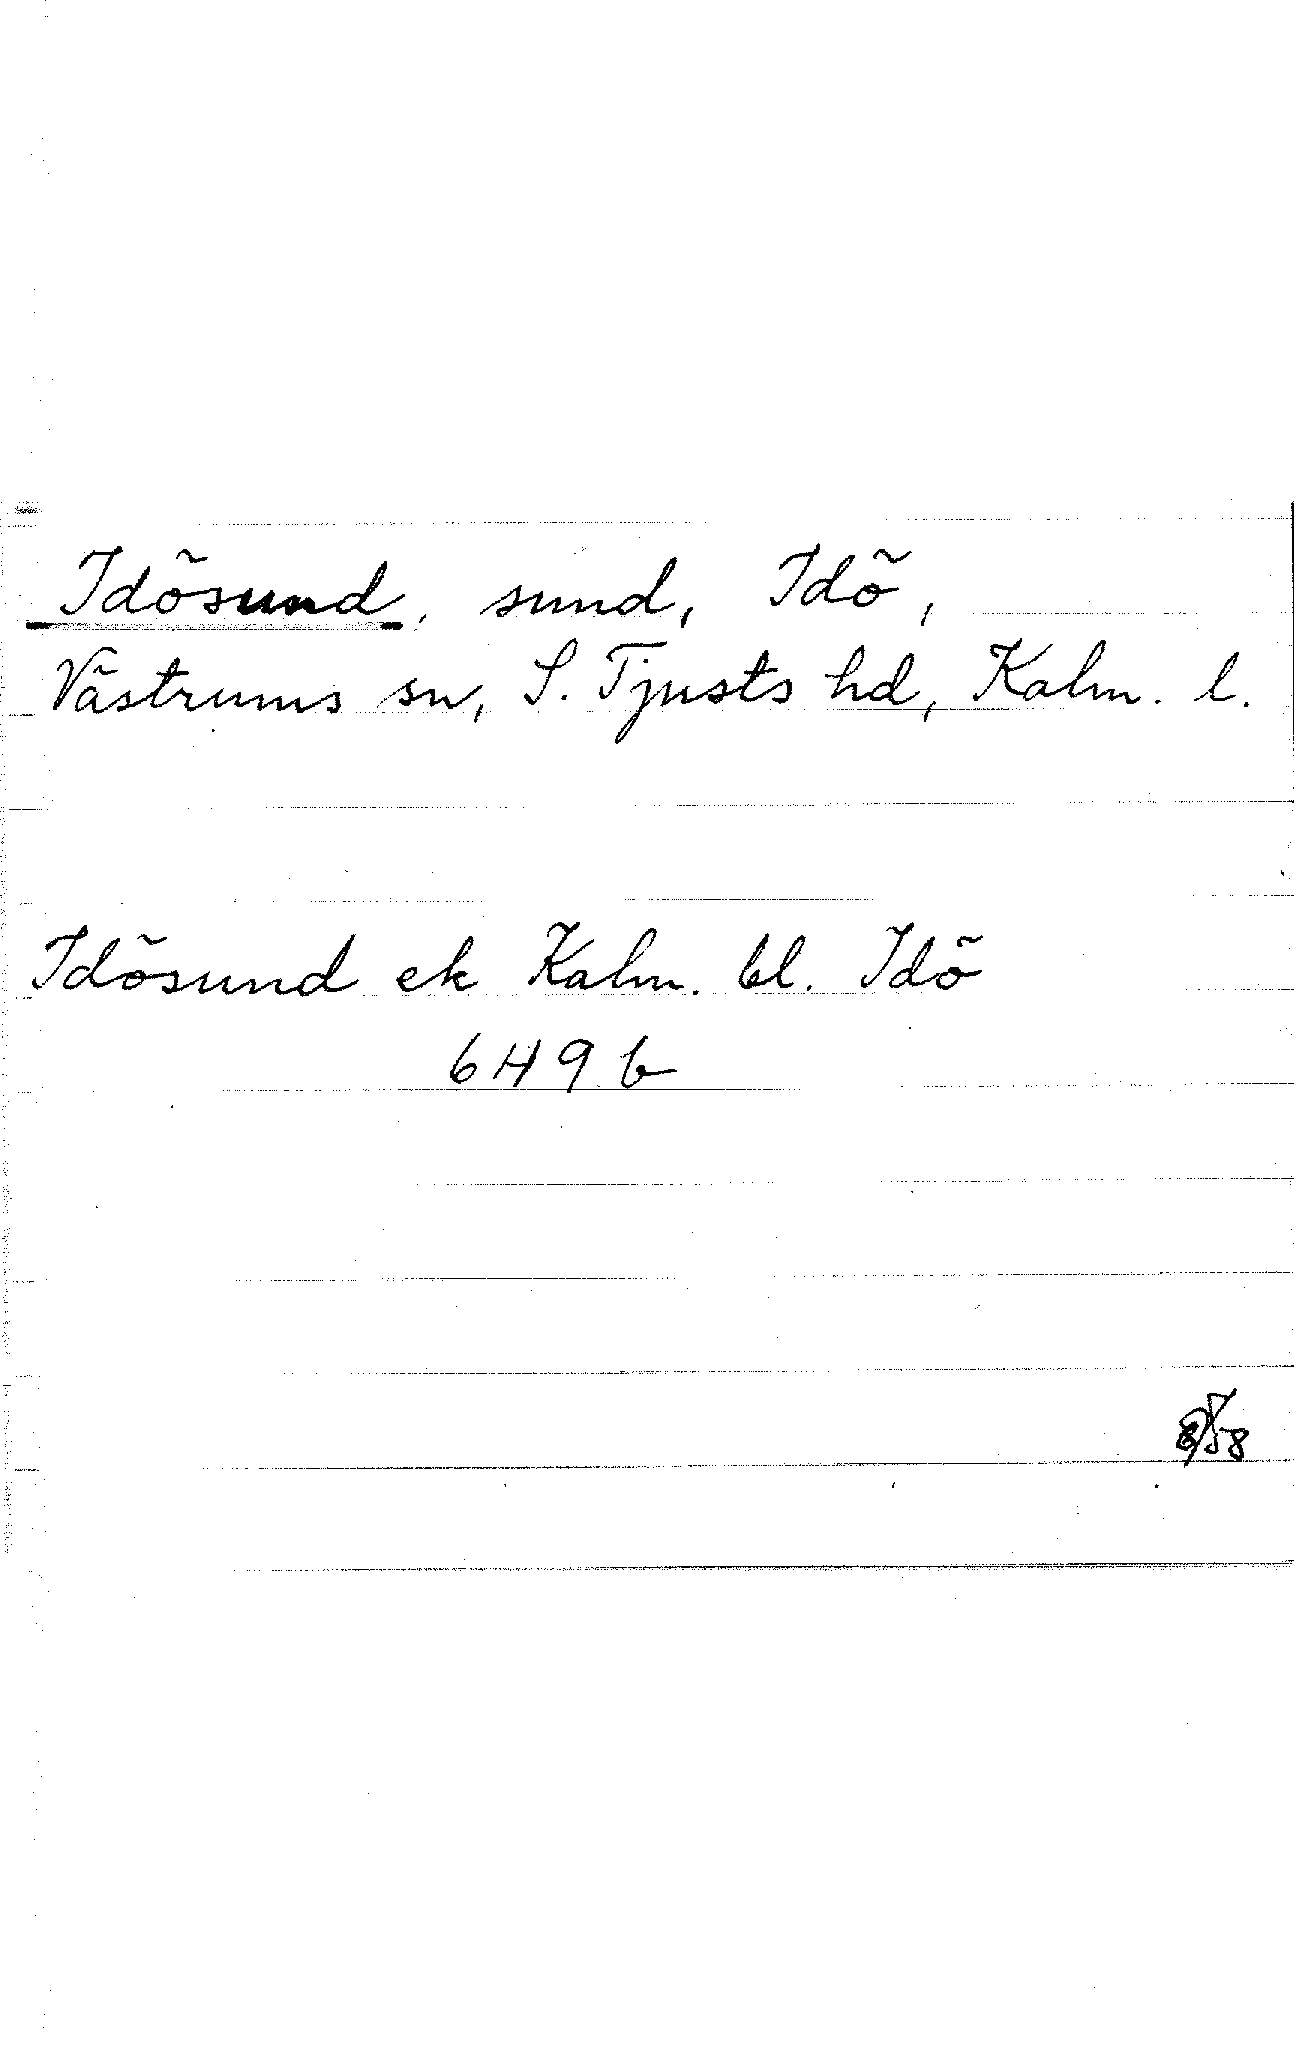 Idösund, sund, Idö,
Västrums sn, S. Tjusts hd, Kalm. l.
Idösund ek Kalm. bl. Idö
6H9b